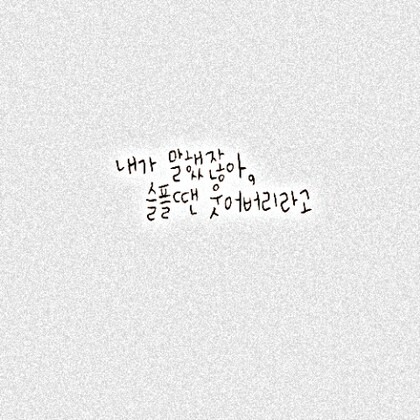 내가 말했잖아,
슬플땐 웃어버리라고